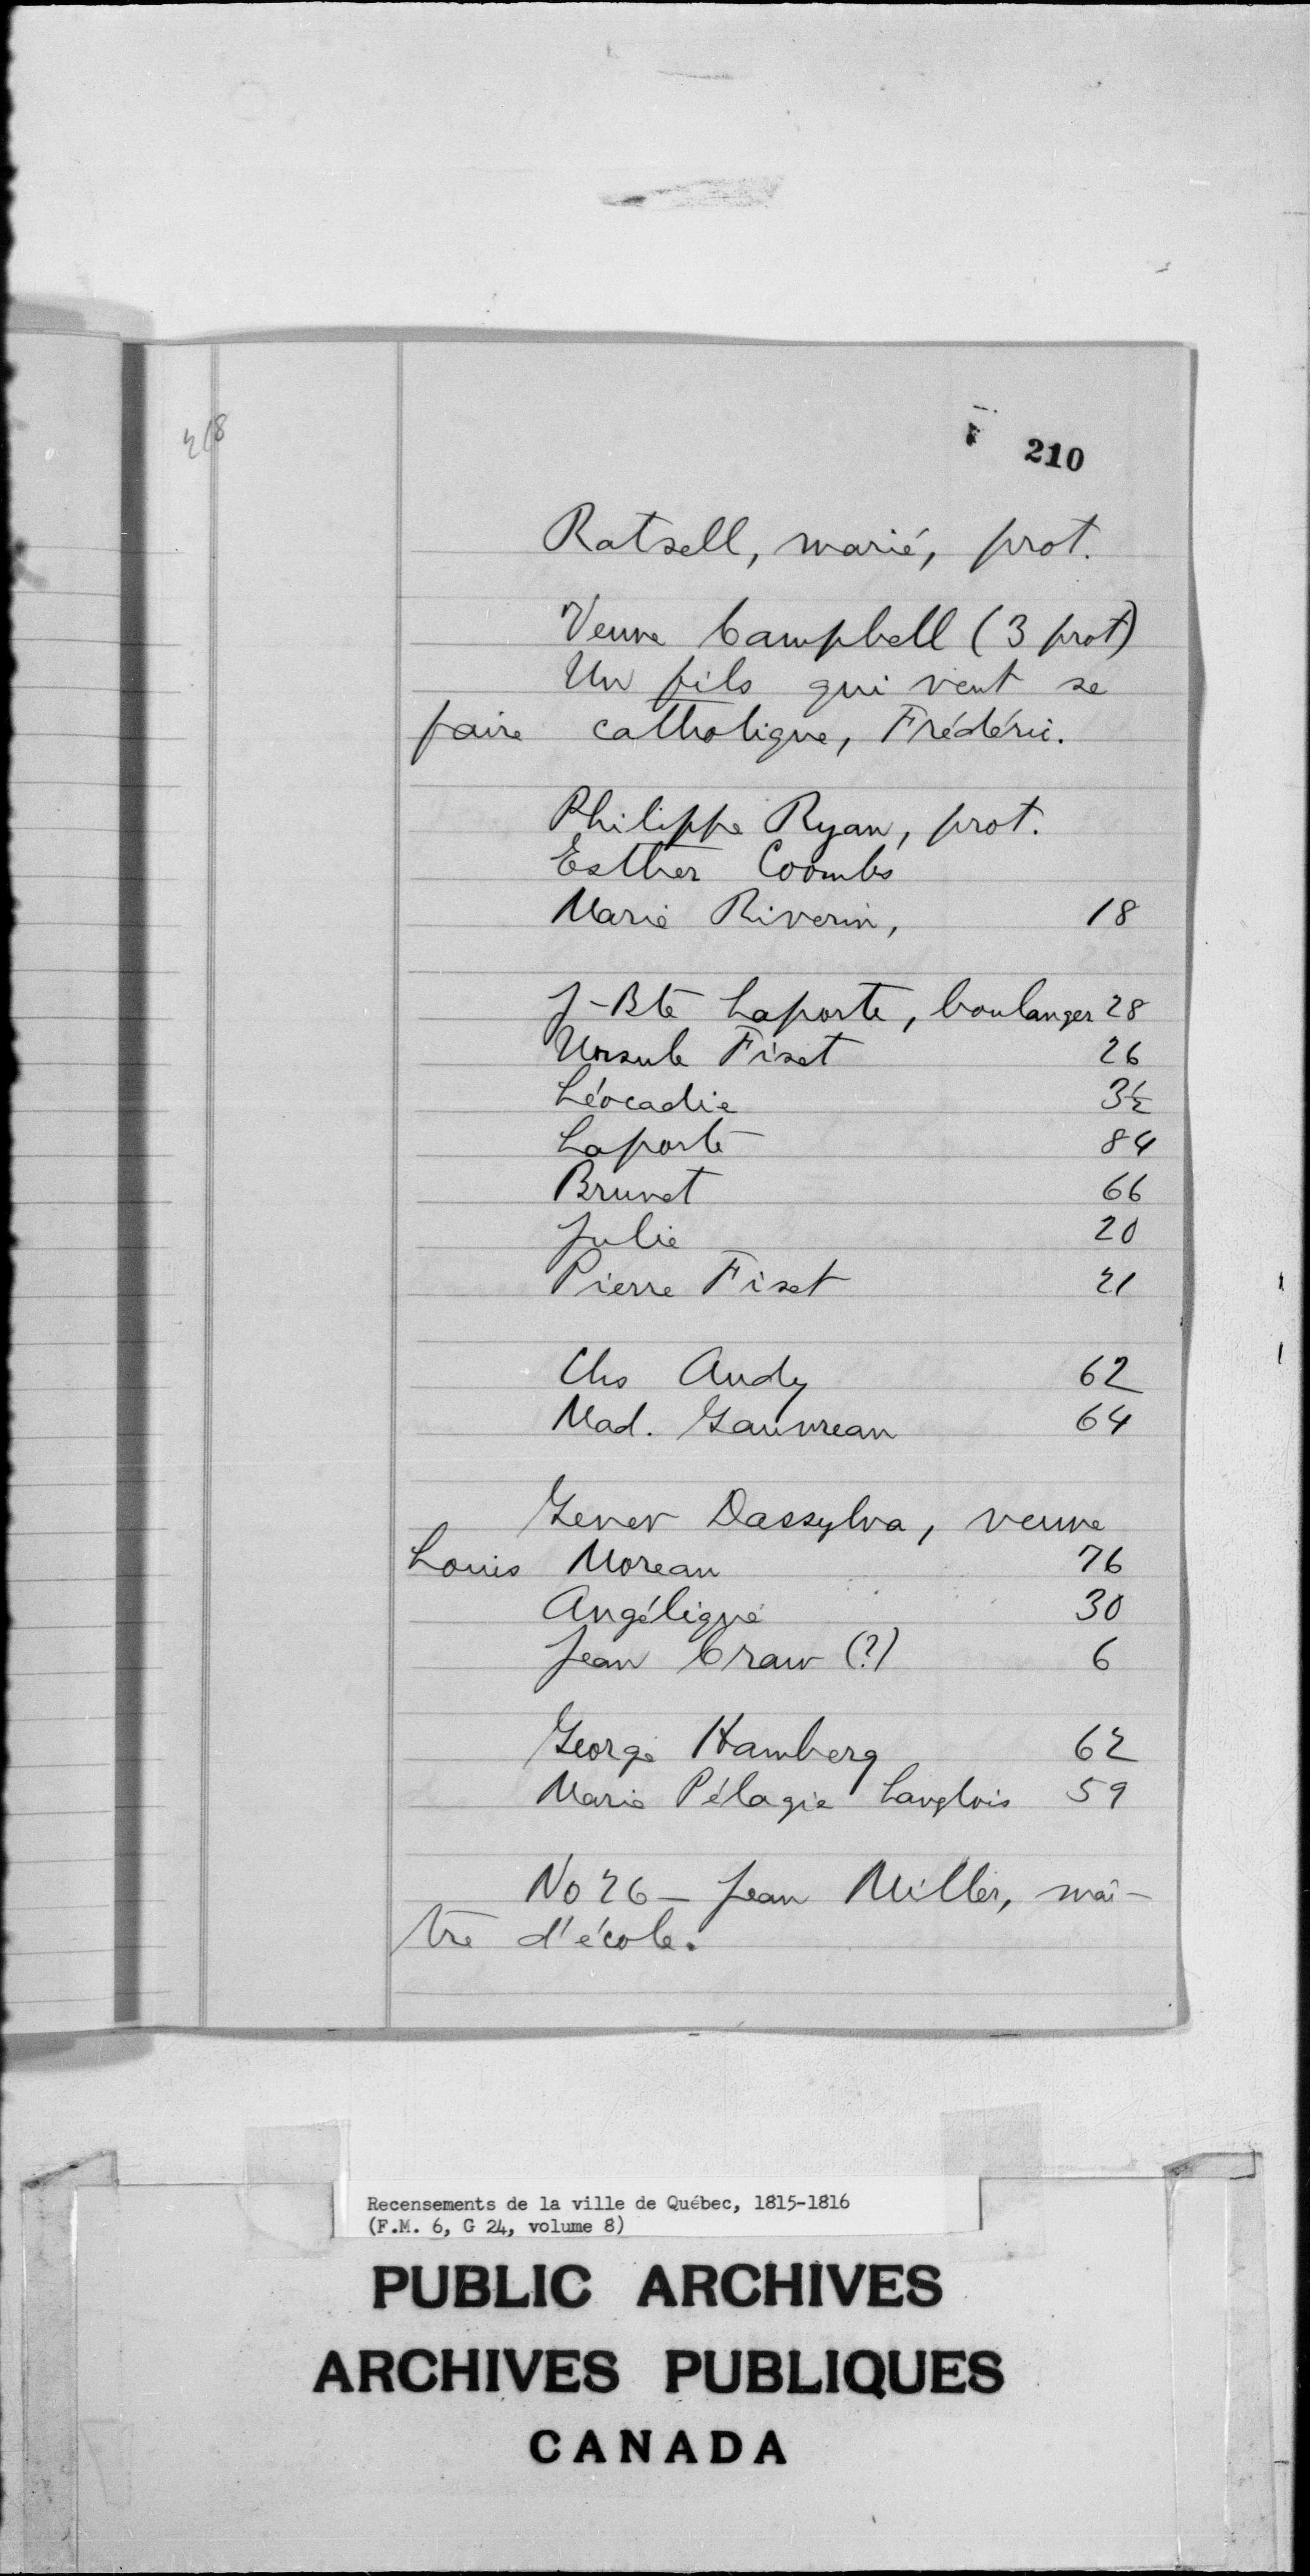 218
210
Ratsell, marié, prot.
Veuve Campbell (3 prot)
Un fils qui veut se
faire catholique, Frédéric.
Philippe Ryan, prot.
Esther Coombs
Marie Riverin, 18
J-Bte Laporte, boulanger 28
Ursule Fiset 26
Léocadie 3½
Laporte 84
Brunet 66
Julie 20
Pierre Fiset 21
Chs Audy 62
Mad. Gauvreau 64
Genev Dassylva, veuve
Louis Moreau 76
Angélique 30
Jean Craw (?) 6
George Hamberg 62
Marie Pélagie Langlois 59
No 26 - Jean Miller, maî-
tre d'école.
Recensements de la ville de Québec, 1815-1816
(F.M. 6, G 24, volume 8)
PUBLIC ARCHIVES
ARCHIVES PUBLIQUES
CANADA